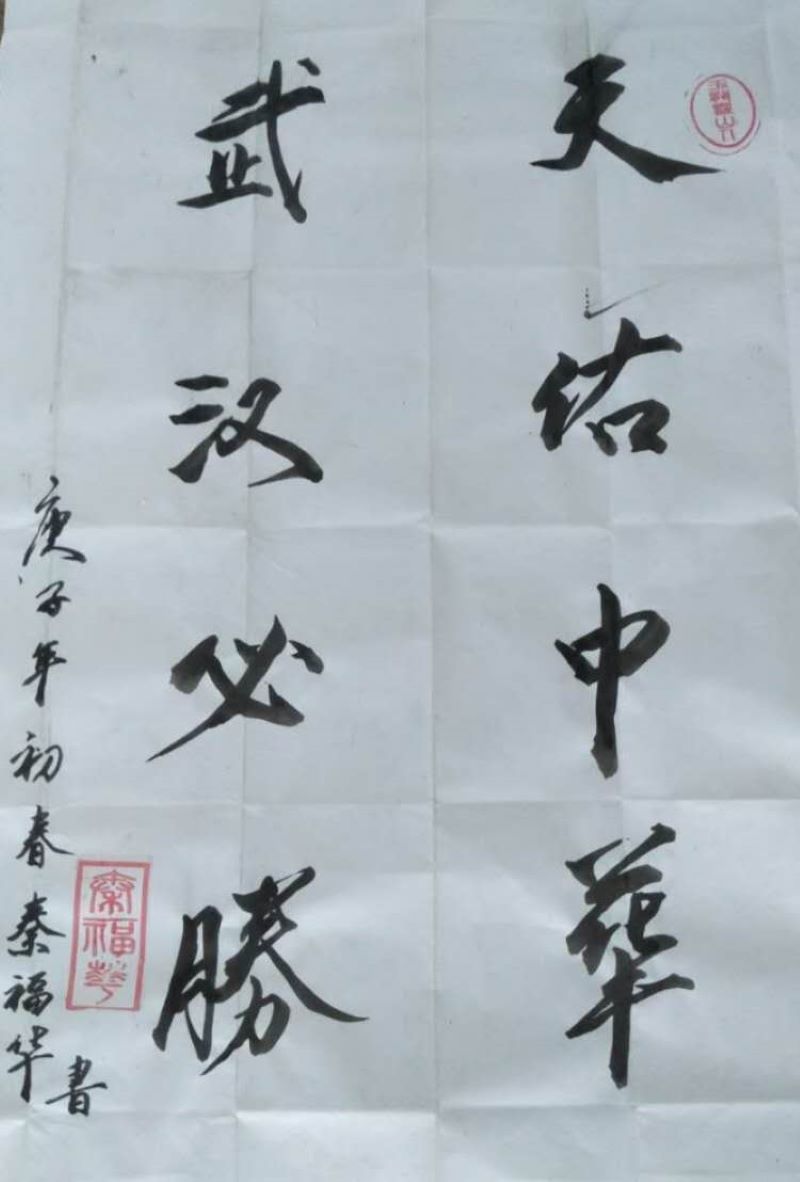 天佑中華
武汉必勝
庚子年初春秦福华書
秦福華